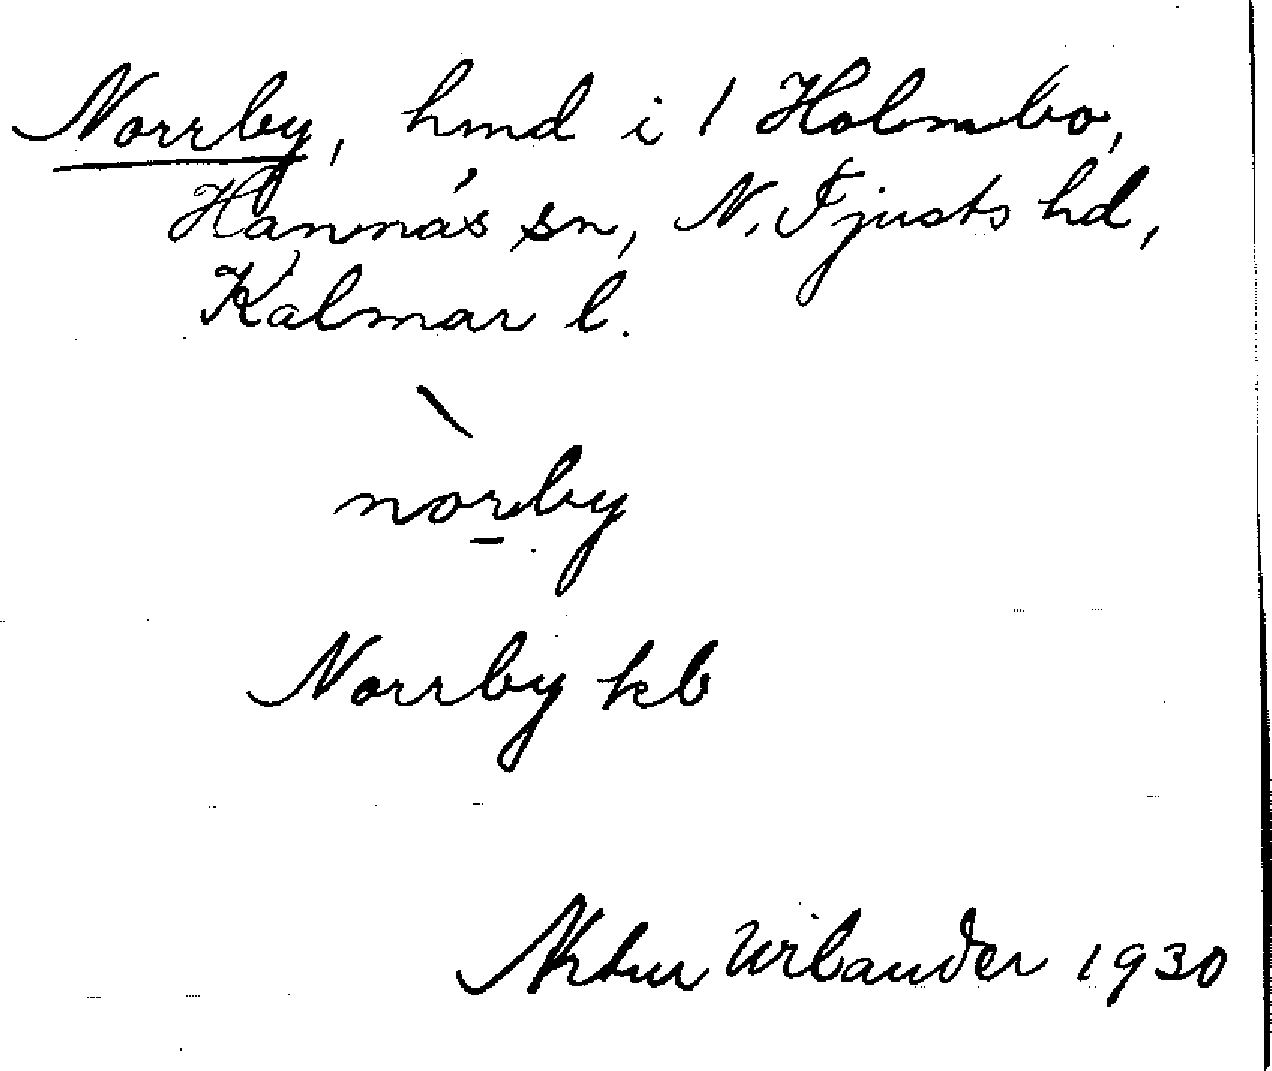 Norrby, hmd i 1 Holmbo,
Hannäs sn, N. Tjusts hd,
Kalmar l.
nòrby
Norrby kb
Artur Wilander 1930